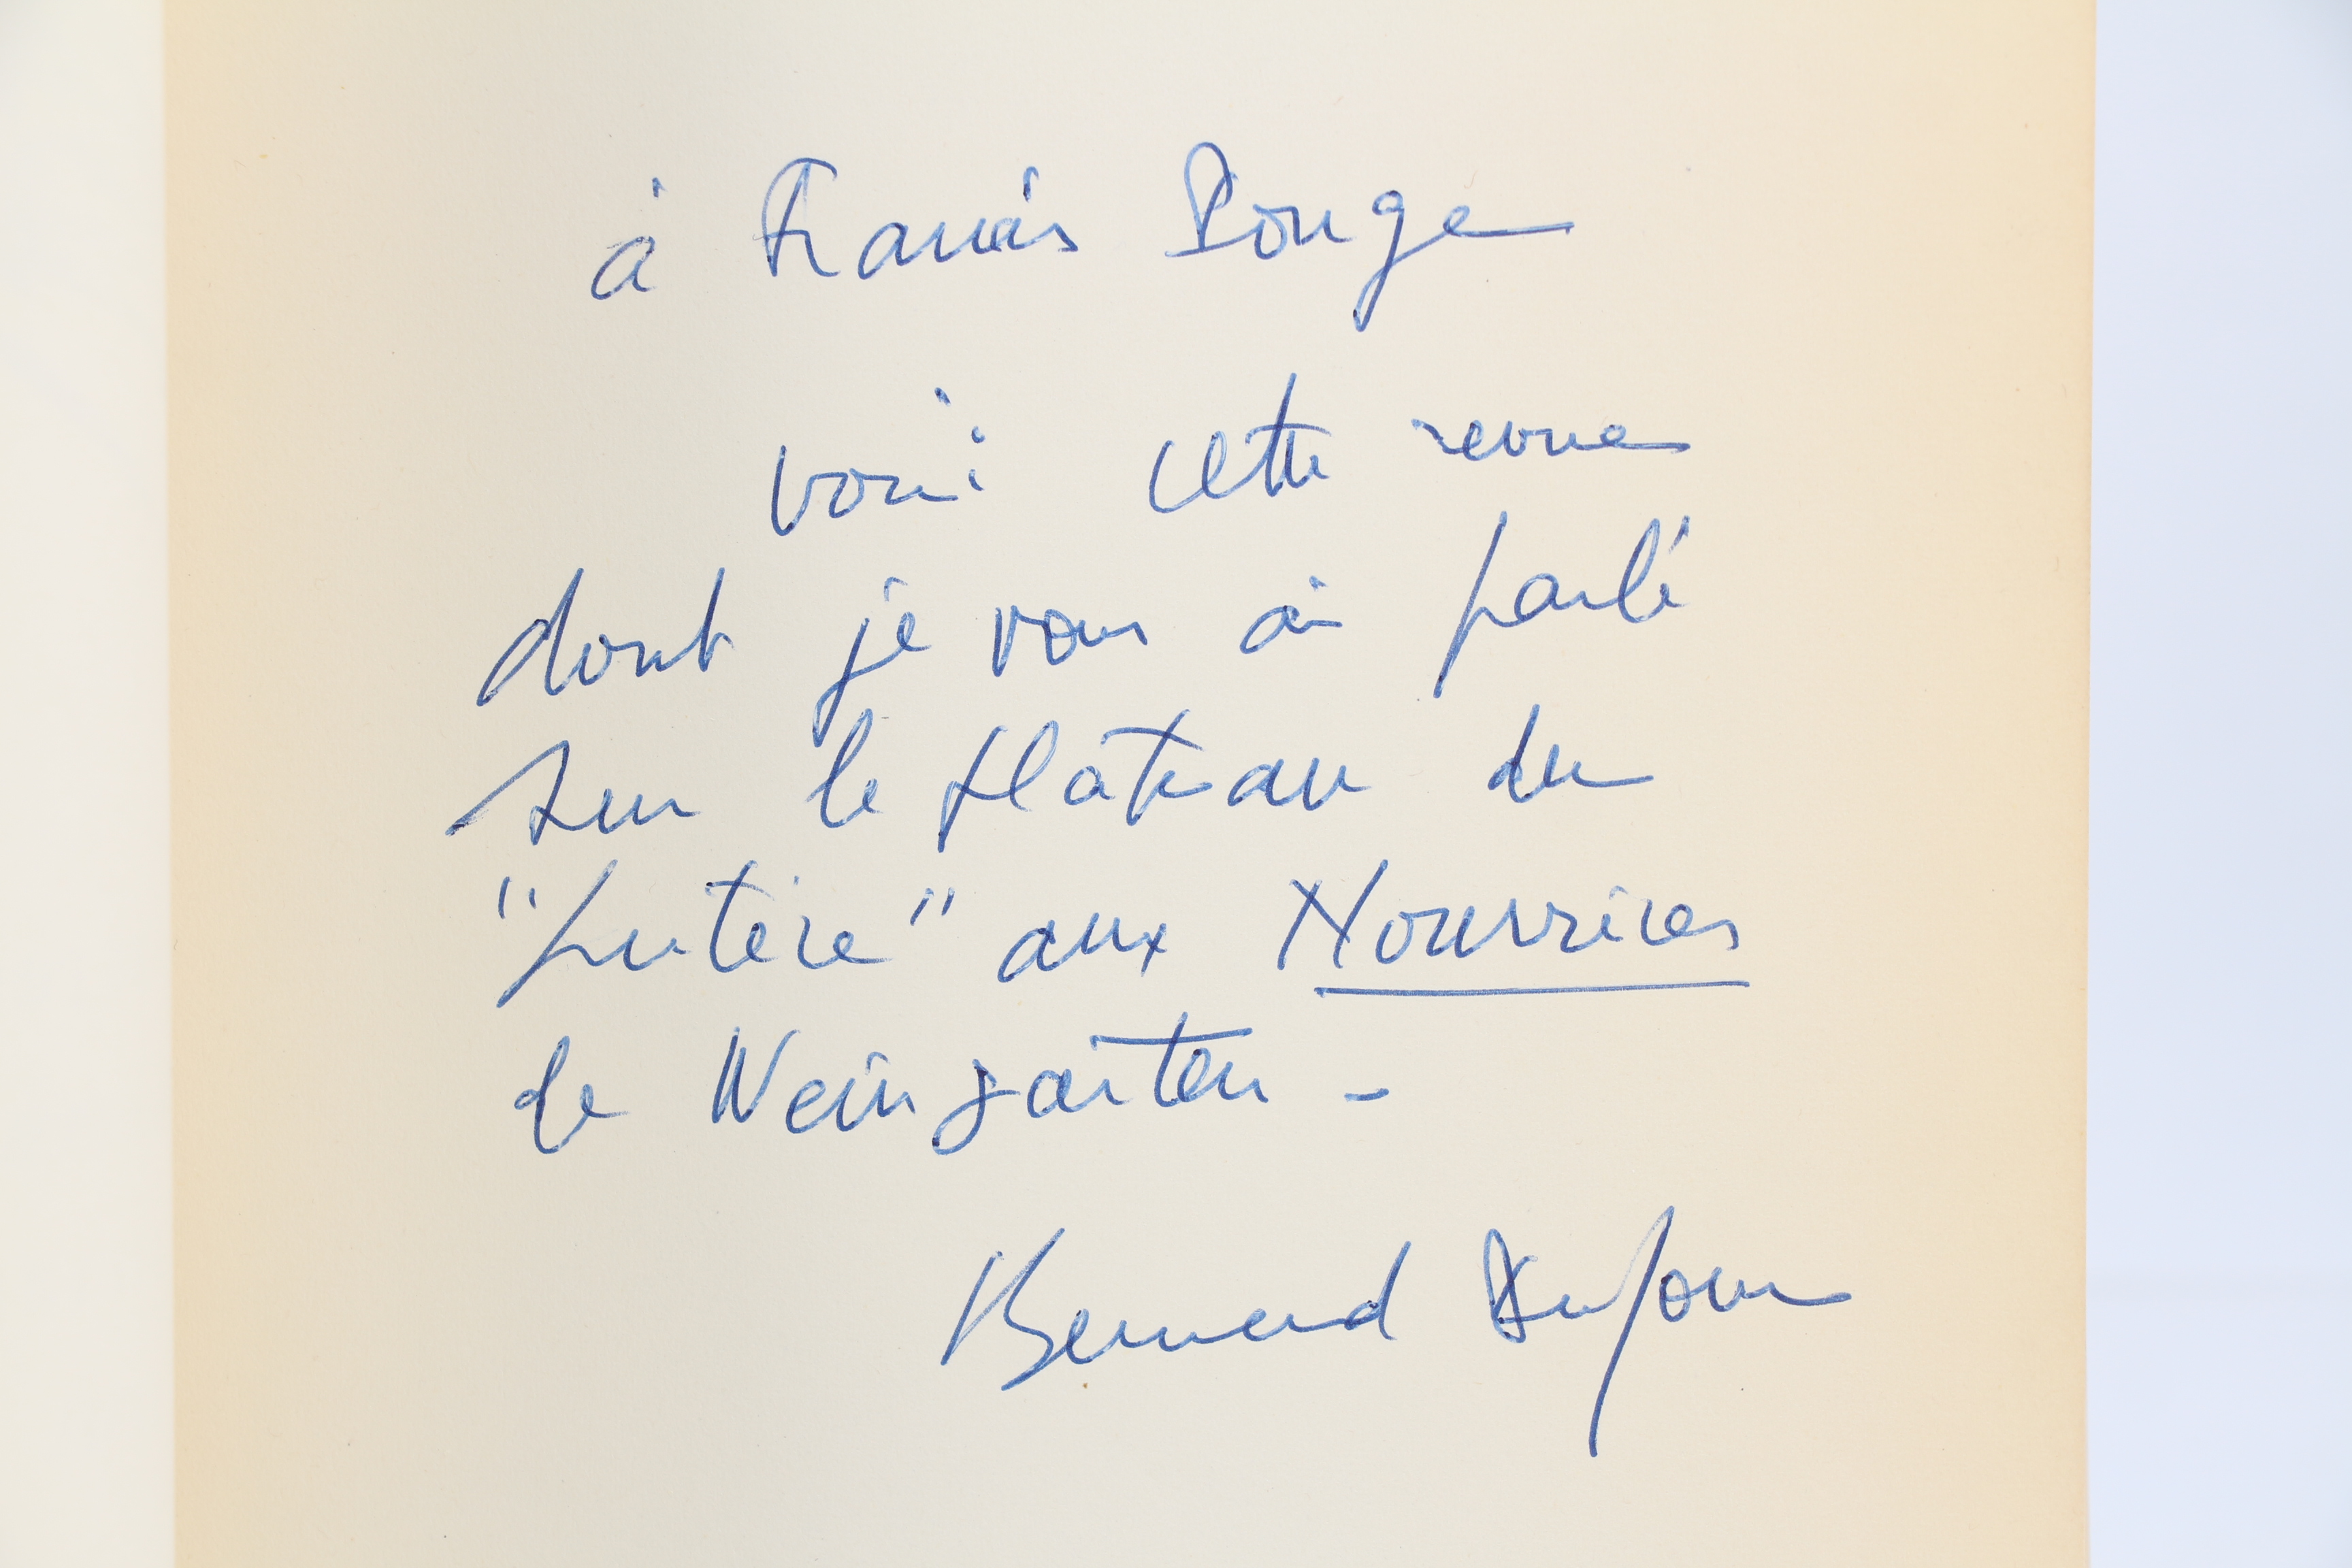 à Francis Ponge
voici cette revue
dont je vous ai parlé
sur le plateau du
"Lutèce" aux Nourrices
de Weingarten -
Bernard Dufour